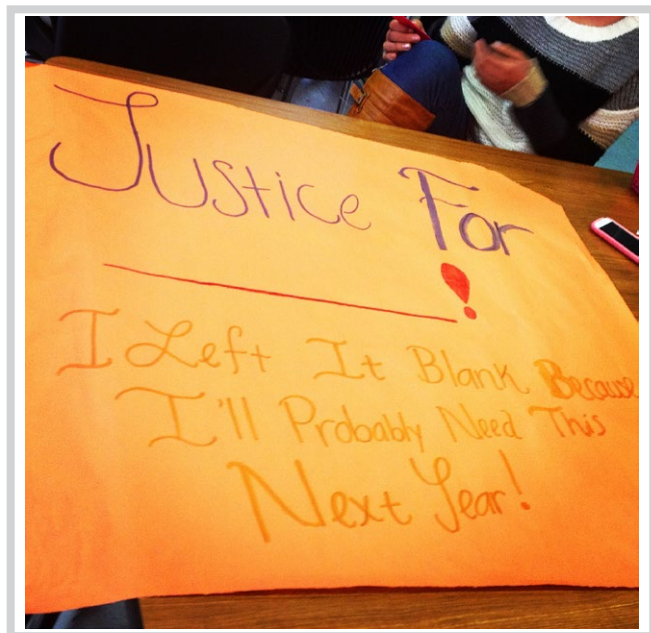 Justice For
________!
I Left It Blank Because
I'll Probably Need This
Next Year!